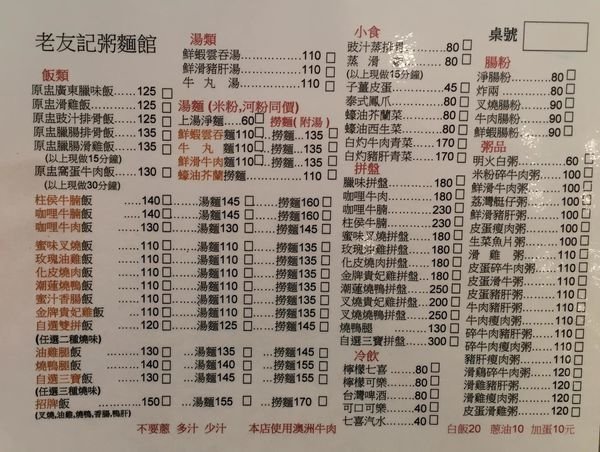 老友記粥麵館
飯類
原盅廣東臘味飯 125
原盅滑雞飯 125
原盅豉汁排骨飯 125
原盅臘腸排骨飯 135
原盅臘腸滑雞飯 135
(以上現做15分鐘)
原盅窩蛋牛肉飯 130
(以上現做30分鐘)
湯類
鮮蝦雲吞湯 110
鮮滑豬肝湯 110
牛丸湯 110
湯麵(米粉,河粉同價)
上湯淨麵 60 撈麵(附湯)
鮮蝦雲吞麵110 撈麵 135
牛丸麵110 撈麵 135
鮮滑牛肉麵110 撈麵 135
蠔油芥蘭撈麵 110
柱侯牛腩飯 140 湯麵145 撈麵160
咖哩牛腩飯 140 湯麵145 撈麵160
咖哩牛肉飯 130 湯麵135 撈麵150
蜜味叉燒飯 110 湯麵110 撈麵135
玫瑰油雞飯 110 湯麵110 撈麵135
化皮燒肉飯 110 湯麵110 撈麵135
潮蓮燒鴨飯 110 湯麵110 撈麵135
蜜汁香腸飯 110 湯麵110 撈麵135
金牌貴妃雞飯 110 湯麵110 撈麵135
自選雙拼飯 120 湯麵125 撈麵145
(任選二種燒味)
油雞腿飯 130 湯麵135 撈麵155
燒鴨腿飯 130 湯麵135 撈麵155
自選三寶飯 130 湯麵135 撈麵155
(任選三種燒味)
招牌飯 150 湯麵155 撈麵170
(叉燒,油雞,燒鴨,香腸,鴨肝)
小食
豉汁蒸排骨 80
蒸滑雞 80
(以上現做15分鐘)
子薑皮蛋 45
泰式鳳爪 80
蠔油芥蘭菜 80
蠔油西生菜 80
白灼牛肉青菜 170
白灼豬肝青菜 170
拼盤
臘味拼盤 180
咖哩牛肉 180
咖哩牛腩 230
柱侯牛腩 230
蜜味叉燒拼盤 180
玫瑰油雞拼盤 180
化皮燒肉拼盤 180
金牌貴妃雞拼盤 180
潮蓮燒鴨拼盤 250
叉燒貴妃雞拼盤 200
叉燒燒鴨拼盤 250
燒鴨腿 130
自選三寶拼盤 300
冷飲
檸檬七喜 80
檸檬可樂 80
台灣啤酒 80
可口可樂 40
七喜汽水 40
桌號
腸粉
淨腸粉 80
炸兩 80
叉燒腸粉 90
牛肉腸粉 90
鮮蝦腸粉 90
粥品
明火白粥 60
米粉碎牛肉粥 100
鮮滑牛肉粥 100
荔灣艇仔粥 100
皮蛋瘦肉粥 100
生菜魚片粥 100
滑雞粥 100
皮蛋碎牛肉粥 110
皮蛋牛肉粥 110
皮蛋豬肝粥 110
牛肉豬肝粥 110
牛肉瘦肉粥 110
碎牛肉瘦肉粥 110
豬肝瘦肉粥 110
滑雞碎牛肉粥 120
滑雞豬肝粥 120
滑雞瘦肉粥 120
皮蛋滑雞粥 120
不要蔥 多汁 少汁 本店使用澳洲牛肉
白飯20 蔥油10 加蛋10元